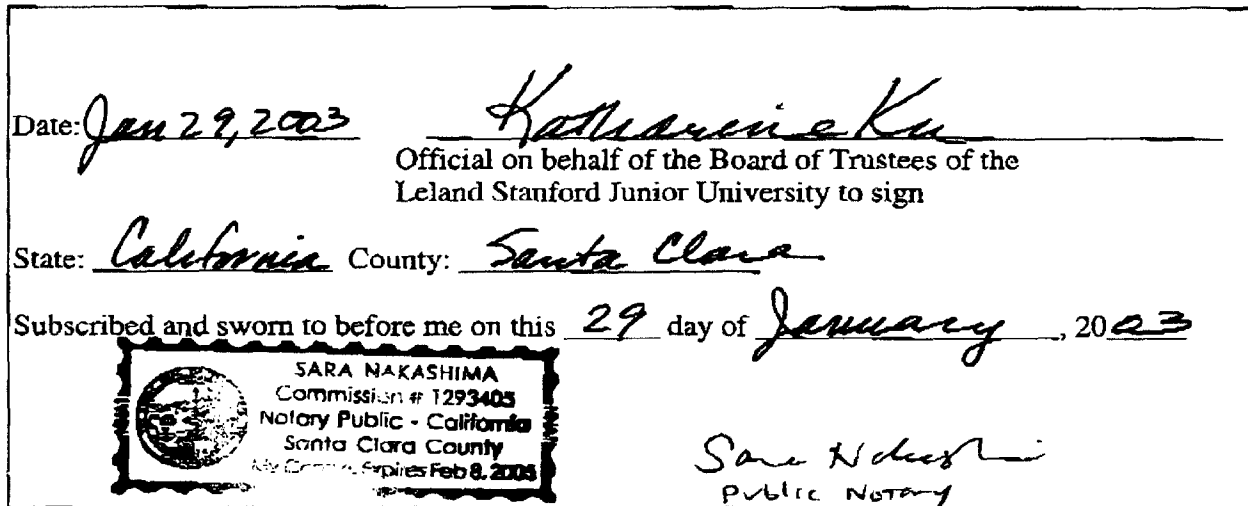 Date: Jan 29, 2003 Katharine Ku
Official on behalf of the Board of Trustees of the
Leland Stanford Junior University to sign
State: California County: Santa Clara
Subscribed and sworn to before me on this 29 day of January, 2003
SARA NAKASHIMA
Commission # 1293405
Notary Public - California
Santa Clara County
My Comm. Expires Feb 8, 2005
Sara
Public Notary